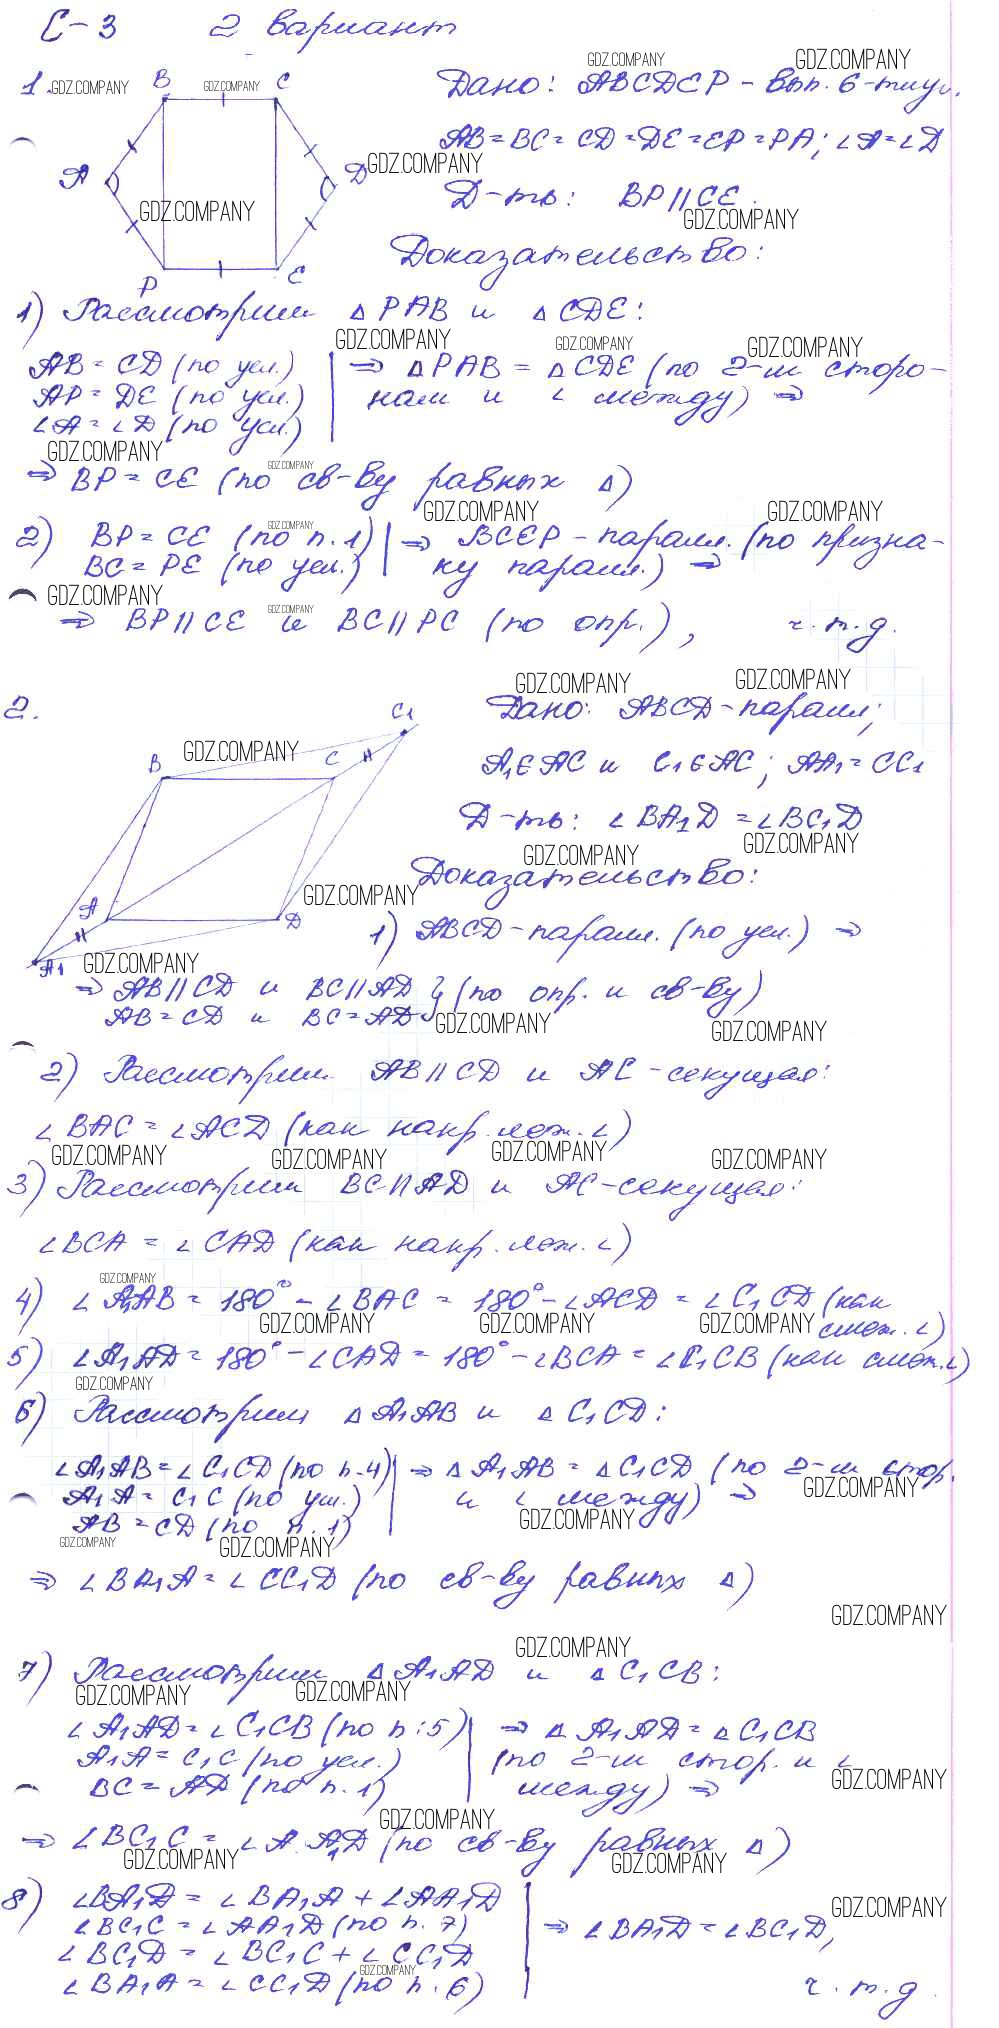 С-3 2 вариант
1. Дано: ABCDEP - вып. 6-тиуг.
AB = BC = CD = DE = EP = PA; ∠A = ∠D
Д-ть: BP || CE.
Доказательство:
B C
A D
P E
1) Рассмотрим △PAB и △CDE:
AB = CD (по усл.) | ⇒ △PAB = △CDE (по 2-м сторо-
AP = DE (по усл.) нам и ∠ между) ⇒
∠A = ∠D (по усл.)
⇒ BP = CE (по св-ву равных △)
2) BP = CE (по п.1) | ⇒ BCEP - паралл. (по призна-
BC = PE (по усл.) ку паралл.) ⇒
⇒ BP || CE и BC || PC (по опр.), ч.т.д.
2. Дано: ABCD - паралл;
A₁ ∈ AC и C₁ ∈ AC; AA₁ = CC₁
Д-ть: ∠BA₁D = ∠BC₁D
Доказательство:
C₁
B C
A D
A₁
1) ABCD - паралл. (по усл.) ⇒
⇒ AB || CD и BC || AD } (по опр. и св-ву)
AB = CD и BC = AD
2) Рассмотрим AB || CD и AC - секущая:
∠BAC = ∠ACD (как накр. леж. ∠)
3) Рассмотрим BC || AD и AC - секущая:
∠BCA = ∠CAD (как накр. леж. ∠)
4) ∠A₁AB = 180° - ∠BAC = 180° - ∠ACD = ∠C₁CD (как
смеж. ∠)
5) ∠A₁AD = 180° - ∠CAD = 180° - ∠BCA = ∠C₁CB (как смеж. ∠)
6) Рассмотрим △A₁AB и △C₁CD:
∠A₁AB = ∠C₁CD (по п.4) | ⇒ △A₁AB = △C₁CD (по 2-м стор.
A₁A = C₁C (по усл.) и ∠ между) ⇒
AB = CD (по п.1)
⇒ ∠BA₁A = ∠CC₁D (по св-ву равных △)
7) Рассмотрим △A₁AD и △C₁CB:
∠A₁AD = ∠C₁CB (по п.5) | ⇒ △A₁AD = △C₁CB
A₁A = C₁C (по усл.) (по 2-м стор. и ∠
BC = AD (по п.1) между) ⇒
⇒ ∠BC₁C = ∠A A₁D (по св-ву равных △)
8) ∠BA₁D = ∠BA₁A + ∠AA₁D
∠BC₁C = ∠AA₁D (по п.7) | ⇒ ∠BA₁D = ∠BC₁D,
∠BC₁D = ∠BC₁C + ∠CC₁D
∠BA₁A = ∠CC₁D (по п.6) ч.т.д.
GDZ.COMPANY